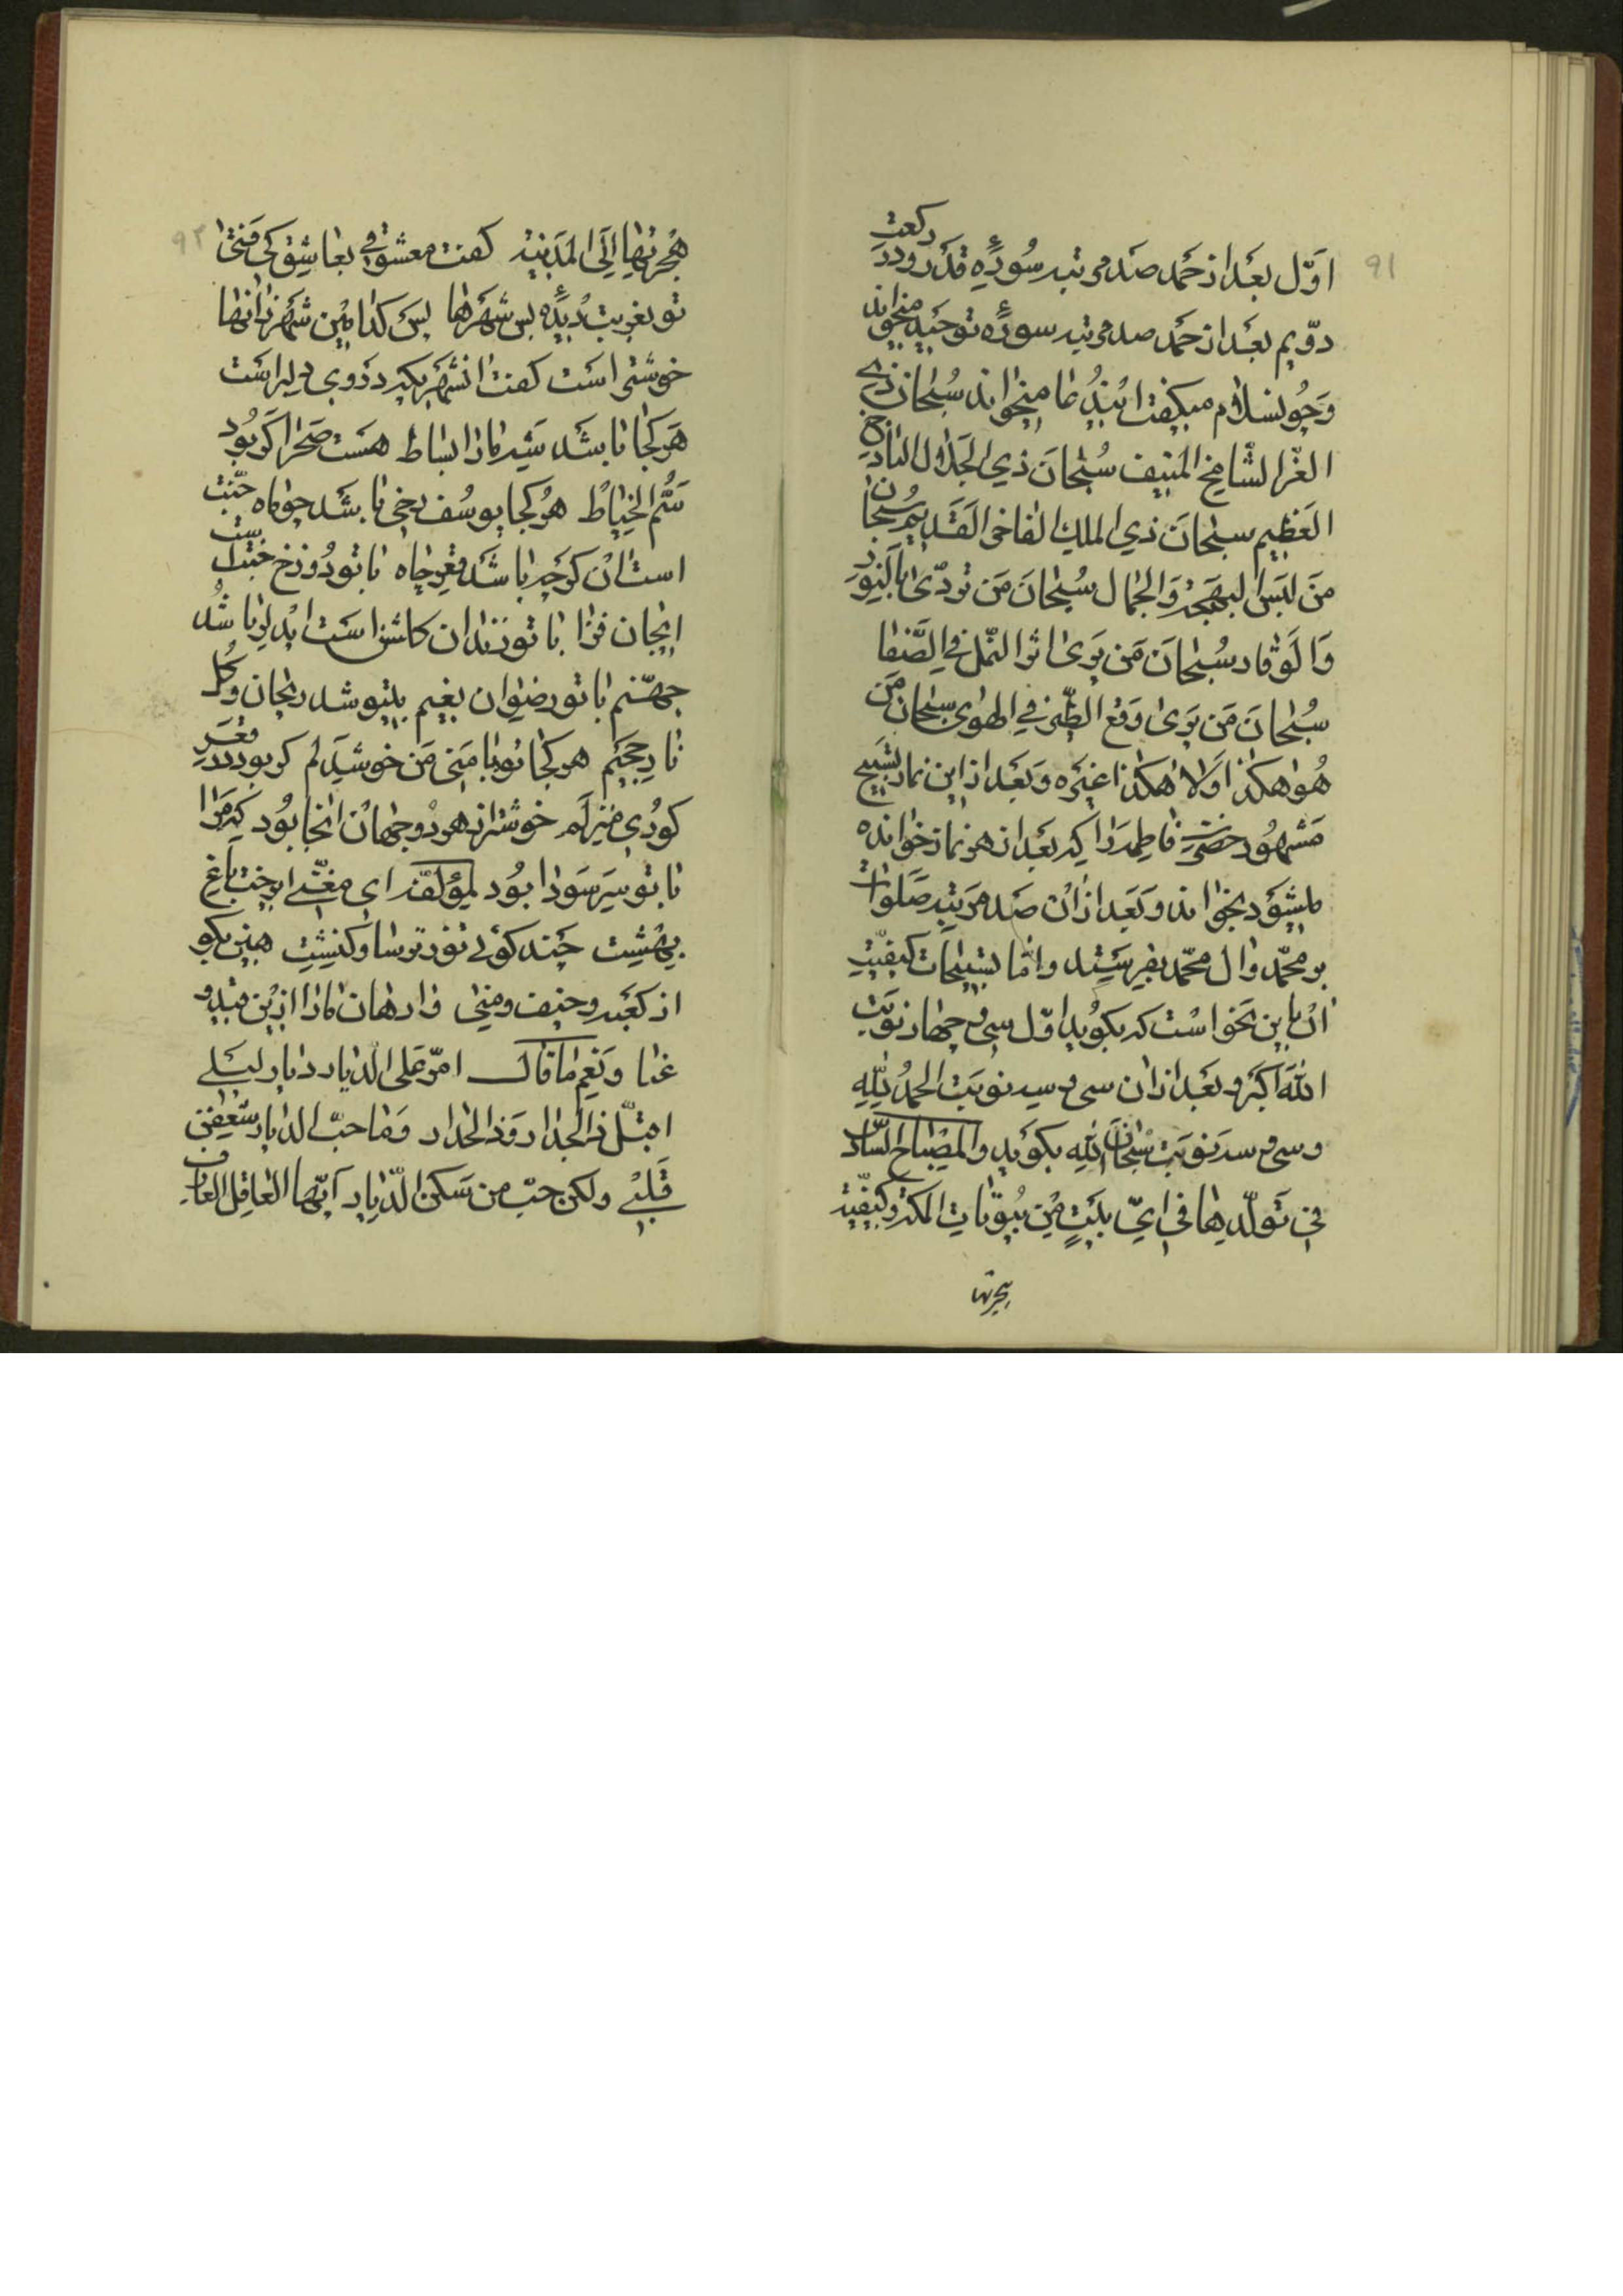 91
اوّل بعد از حمد صد مرتبه سورهٔ قدر و در رکعت
دوّیم بعد از حمد صد مرتبه سورهٔ توحید میخواند
و چو بسلام میگفت این دعا میخواند سُبحان ذی
العزّ الشّامخ المنیف سُبحانَ ذی الجلال الباذخ
العَظیم سبحانَ ذی الملك الفاخر القدیم سُبحان
مَن لبَسَ البهجة وَالجمال سُبحانَ مَن تردّیٰ بالنّور
وَالوَقار سُبحانَ مَن یَریٰ اثر النّمل فی الصَّفا
سُبحانَ مَن یَریٰ وَقع الطّیر فی الهوی سبحان مَن
هُوَ هکذا وَلا هکذا غیره وَ بَعد از این نماز تسبیح
مَشهُور حضرت فاطمه را که بَعد از هر نماز خوانده
میشود بخواند و بَعد از ان صَد مرتبه صَلوات
بر محمّد و ال محمّد بفرستد و امّا تسبیحات کیفیّت
ان باین نحو است که بکوید اوّل سی و چهار نوبَت
اللهُ اَکبَر و بعد از ان سی و سه نوبَت الحمدُ لِلّٰهِ
و سی و سه نوبَت سُبحانَ اللهِ بکوید والمصباح السّاد
فی تَولّدِها فی ایّ بَیتٍ مِن بُیوتاتِ المکة و کیفیّة
هجرتها
هِجرتِها اِلَی المَدینة کفت معشوقی بعاشِق کی فتیٰ 92
تو بغربت دیدهٔ بس شَهرها پس کدامین شَهر زانها
خوشتر است کفت انشهریکه در وی دلبر است
هَر کجا باشد شه ما را بساط هست صَحرا کر بُود
سَمُّ الخیاط هر کجا یوسُف رخی باشد چو ماه جنّت
است ان کرچه باشد قعر چاه با تو دوزخ جنّت است
ایجان فزا با تو زندان کلشن است ایدلربا شُد
جهنّم با تو رضوان نعیم بیتو شد ریحان و کُل
نار جحیم هر کجا تو با منی من خوشدلم کر بود در قعر
کوری منزلم خوشتر از هر دو جهان انجا بُود که مرا
با تو سَر سَودا بُود لمؤلفه ای مغنّی
بهشت چند کوئی نفور ترسا و کنشت هین مکو
از کعبه و حنیف و منیٰ وارهان مارا ازین قید و
عنا وَنِعم ما قال امرّ علی الدّیار دیار لیلی
اقبّل ذا الجدار وَذا الجدار وَما حبّ الدیار شغفن
قَلبی ولکن حبّ من سَکن الدّیار اَیّها العاقل العارف